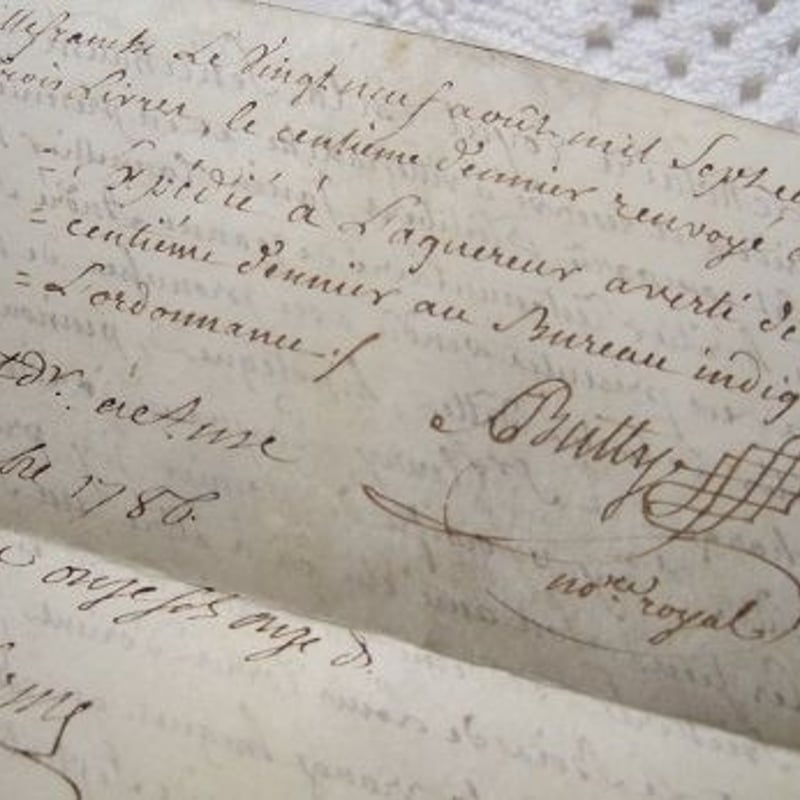 Le Vingt neuf août mil Sept
trois Livres, le centieme denier renvoyé
= Expédié à L'aquereur averti de
= centiéme denier au Bureau indiq
= L'ordonnance ./.
Butty
1786.
no.re royal
onze s.ls onze d.